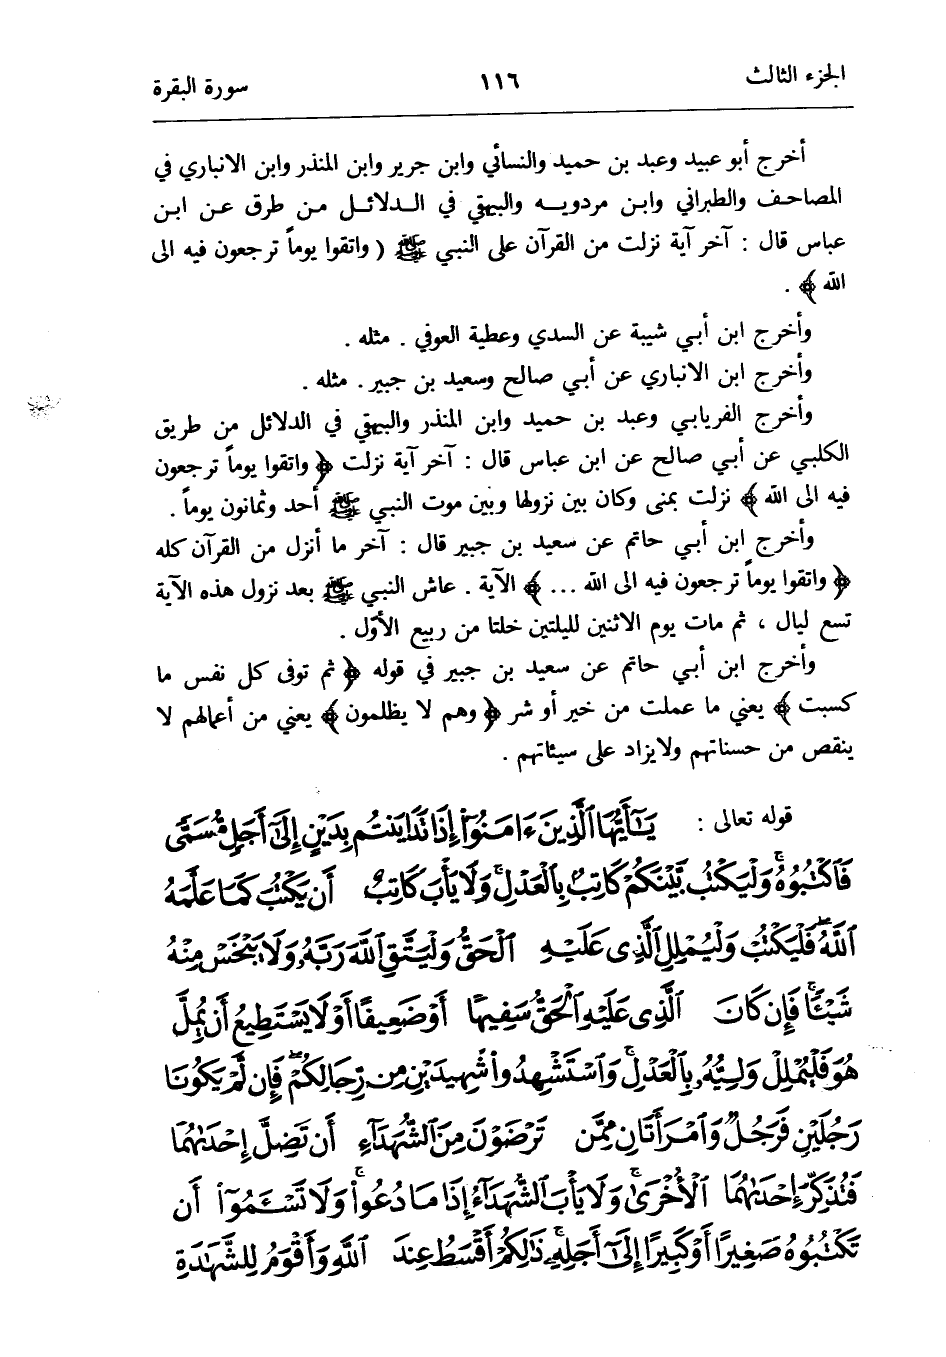 الجزء الثالث ١١٦ سورة البقرة
أخرج أبو عبيد وعبد بن حميد والنسائي وابن جرير وابن المنذر وابن الانباري في
المصاحف والطبراني وابن مردويه والبيهقي في الدلائل من طرق عن ابن
عباس قال : آخر آية نزلت من القرآن على النبي ﷺ ( واتقوا يوماً ترجعون فيه الى
الله ﴾ .
وأخرج ابن أبي شيبة عن السدي وعطية العوفي . مثله .
وأخرج ابن الانباري عن أبي صالح وسعيد بن جبير . مثله .
وأخرج الفريابي وعبد بن حميد وابن المنذر والبيهقي في الدلائل من طريق
الكلبي عن أبي صالح عن ابن عباس قال : آخر آية نزلت ﴿ واتقوا يوماً ترجعون
فيه الى الله ﴾ نزلت بمنى وكان بين نزولها وبين موت النبي ﷺ أحد وثمانون يوماً .
وأخرج ابن أبي حاتم عن سعيد بن جبير قال : آخر ما أنزل من القرآن كله
﴿ واتقوا يوماً ترجعون فيه الى الله ... ﴾ الآية . عاش النبي ﷺ بعد نزول هذه الآية
تسع ليال ، ثم مات يوم الاثنين لليلتين خلتا من ربيع الأوّل .
وأخرج ابن أبي حاتم عن سعيد بن جبير في قوله ﴿ ثم توفى كل نفس ما
كسبت ﴾ يعني ما عملت من خير أو شر ﴿ وهم لا يظلمون ﴾ يعني من أعمالهم لا
ينقص من حسناتهم ولا يزاد على سيئاتهم .
قوله تعالى : يَٰٓأَيُّهَا ٱلَّذِينَ ءَامَنُوٓا۟ إِذَا تَدَايَنتُم بِدَيْنٍ إِلَىٰٓ أَجَلٍ مُّسَمًّى
فَٱكْتُبُوهُ ۚ وَلْيَكْتُب بَّيْنَكُمْ كَاتِبٌۢ بِٱلْعَدْلِ ۚ وَلَا يَأْبَ كَاتِبٌ أَن يَكْتُبَ كَمَا عَلَّمَهُ
ٱللَّهُ ۚ فَلْيَكْتُبْ وَلْيُمْلِلِ ٱلَّذِى عَلَيْهِ ٱلْحَقُّ وَلْيَتَّقِ ٱللَّهَ رَبَّهُۥ وَلَا يَبْخَسْ مِنْهُ
شَيْـًٔا ۚ فَإِن كَانَ ٱلَّذِى عَلَيْهِ ٱلْحَقُّ سَفِيهًا أَوْ ضَعِيفًا أَوْ لَا يَسْتَطِيعُ أَن يُمِلَّ
هُوَ فَلْيُمْلِلْ وَلِيُّهُۥ بِٱلْعَدْلِ ۚ وَٱسْتَشْهِدُوا۟ شَهِيدَيْنِ مِن رِّجَالِكُمْ ۖ فَإِن لَّمْ يَكُونَا
رَجُلَيْنِ فَرَجُلٌ وَٱمْرَأَتَانِ مِمَّن تَرْضَوْنَ مِنَ ٱلشُّهَدَآءِ أَن تَضِلَّ إِحْدَىٰهُمَا
فَتُذَكِّرَ إِحْدَىٰهُمَا ٱلْأُخْرَىٰ ۚ وَلَا يَأْبَ ٱلشُّهَدَآءُ إِذَا مَا دُعُوا۟ ۚ وَلَا تَسْـَٔمُوٓا۟ أَن
تَكْتُبُوهُ صَغِيرًا أَوْ كَبِيرًا إِلَىٰٓ أَجَلِهِۦ ۚ ذَٰلِكُمْ أَقْسَطُ عِندَ ٱللَّهِ وَأَقْوَمُ لِلشَّهَٰدَةِ